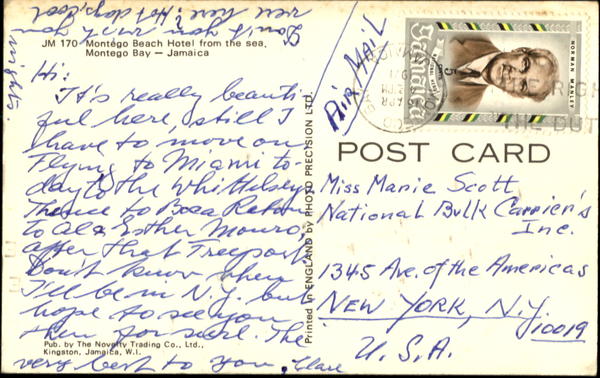 JM 170 Montego Beach Hotel from the sea,
Montego Bay — Jamaica
Hi:
It's really beauti-
ful here, still I
have to move on
Flying to Miami to-
day to the Whittelsey
Thence to Boca Raton
to Al & Esther Munro,
after that Freeport
Don't know when
I'll be in N.Y. but
hope to see you
then for sure. The
very best to you, Clare
Don't you wish you
were here? Hot days, cool
nights.
Pub. by The Novelty Trading Co., Ltd.,
Kingston, Jamaica, W.I.
Printed in ENGLAND by PHOTO PRECISION LTD.
AIR MAIL
Jamaica
NORMAN MANLEY
POST CARD
Miss Marie Scott
National Bulk Carrier's
Inc.
1345 Ave. of the Americas
NEW YORK, N.Y.
10019
U.S.A.